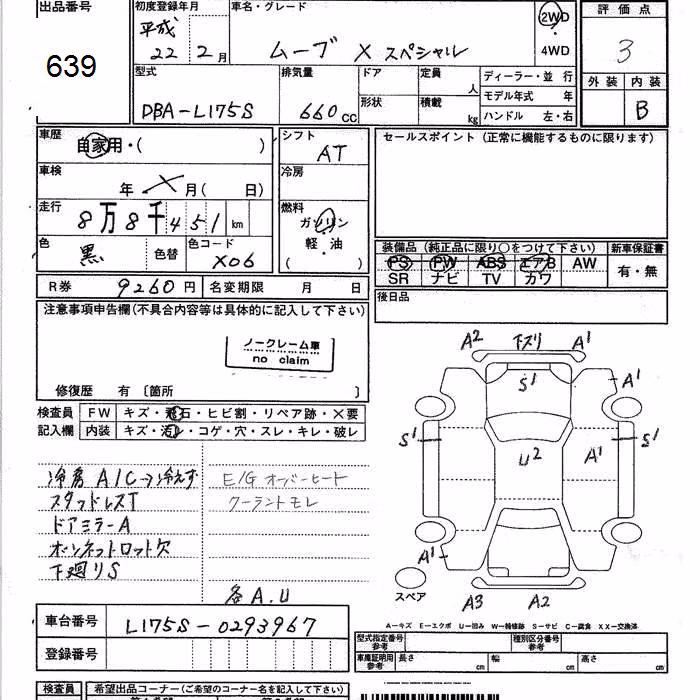 出品番号
639
初度登録年月
平成
22 2月
車名・グレード
ムーブ X スペシャル
2WD
4WD
評価点
3
外装 内装
B
型式
DBA-L175S
排気量
660 CC
ドア
形状
定員
人
積載
kg
ディーラー・並 行
モデル年式 年
ハンドル 左・右
車歴
自家用・( )
車検
年 X 月( 日)
走行
8万8千451 km
色
黒
色替
色コード
X06
シフト
AT
冷房
燃料
ガソリン
軽・油
( )
セールスポイント (正常に機能するものに限ります)
装備品 (純正品に限り○をつけて下さい)
PS PW ABS エアB AW
SR ナビ TV カワ
新車保証書
有・無
R券 9260円
名変期限 月 日
後日品
注意事項申告欄(不具合内容等は具体的に記入して下さい)
ノークレーム車
no claim
修復歴 有 〔箇所 〕
検査員
記入欄
FW キズ・飛石・ヒビ割・リペア跡・×要
内装 キズ・汚レ・コゲ・穴・スレ・キレ・破レ
冷房 A/C→冷えず
スタッドレスT
ドアミラーA
ボンネットロット欠
下廻りS
E/G オーバーヒート
クーラントモレ
各A.U
A2 下ズリ A1
S1
A1
S1
U2
A1
S1
A1
スペア
A3 A2
A-キズ E-エクボ U-凹み W-補修跡 S-サビ C-腐食 XX-交換済
車台番号
L175S-0293967
登録番号
型式指定番号
参考
種別区分番号
参考
車庫証明用
参考
長さ cm
幅 cm
高さ cm
検査員
希望出品コーナー(ご希望のコーナー名を記入して下さい)